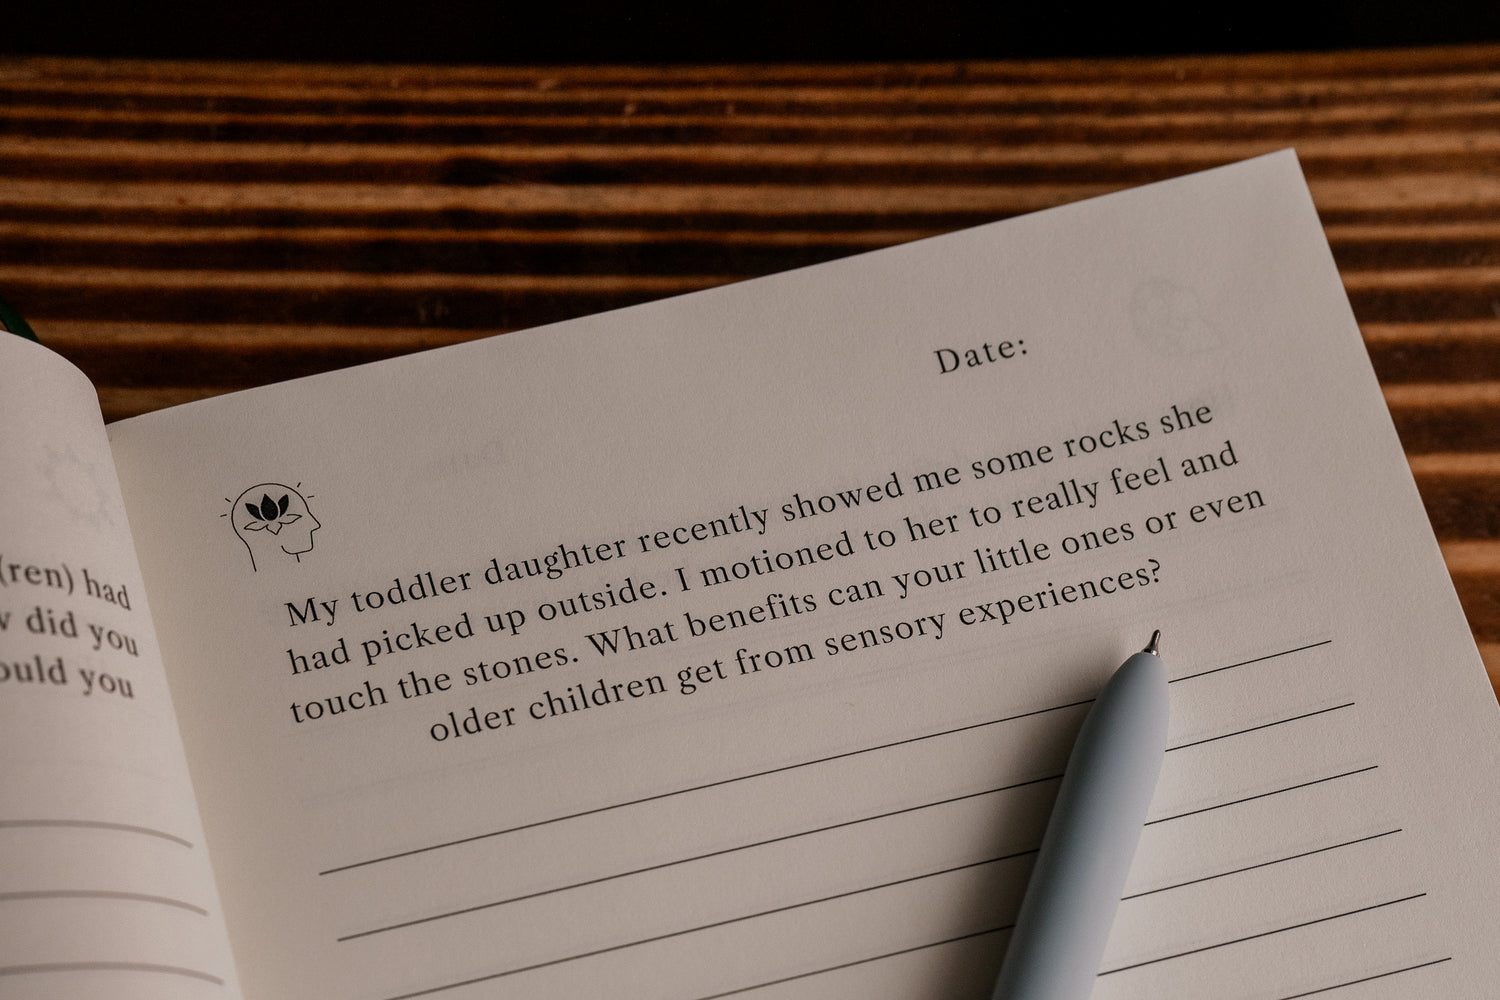 (ren) had
did you
ould you
Date:
My toddler daughter recently showed me some rocks she
had picked up outside. I motioned to her to really feel and
touch the stones. What benefits can your little ones or even
older children get from sensory experiences?